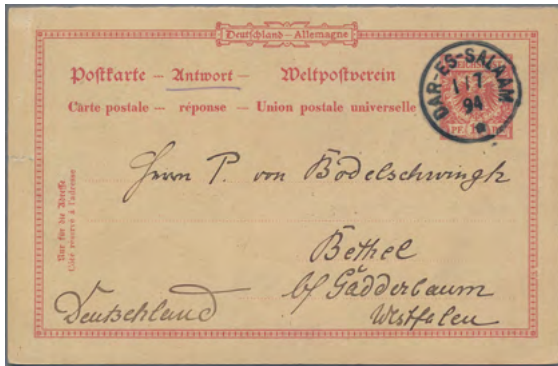 Deutschland – Allemagne
Postkarte – Antwort – Weltpostverein
Carte postale – réponse – Union postale universelle
DAR-ES-SALAAM
1 7
94
Nur für die Adresse
Côté réservé à l'adresse
Herrn P. von Bodelschwingh
Bethel
b/ Gadderbaum
Westfalen
Deutschland